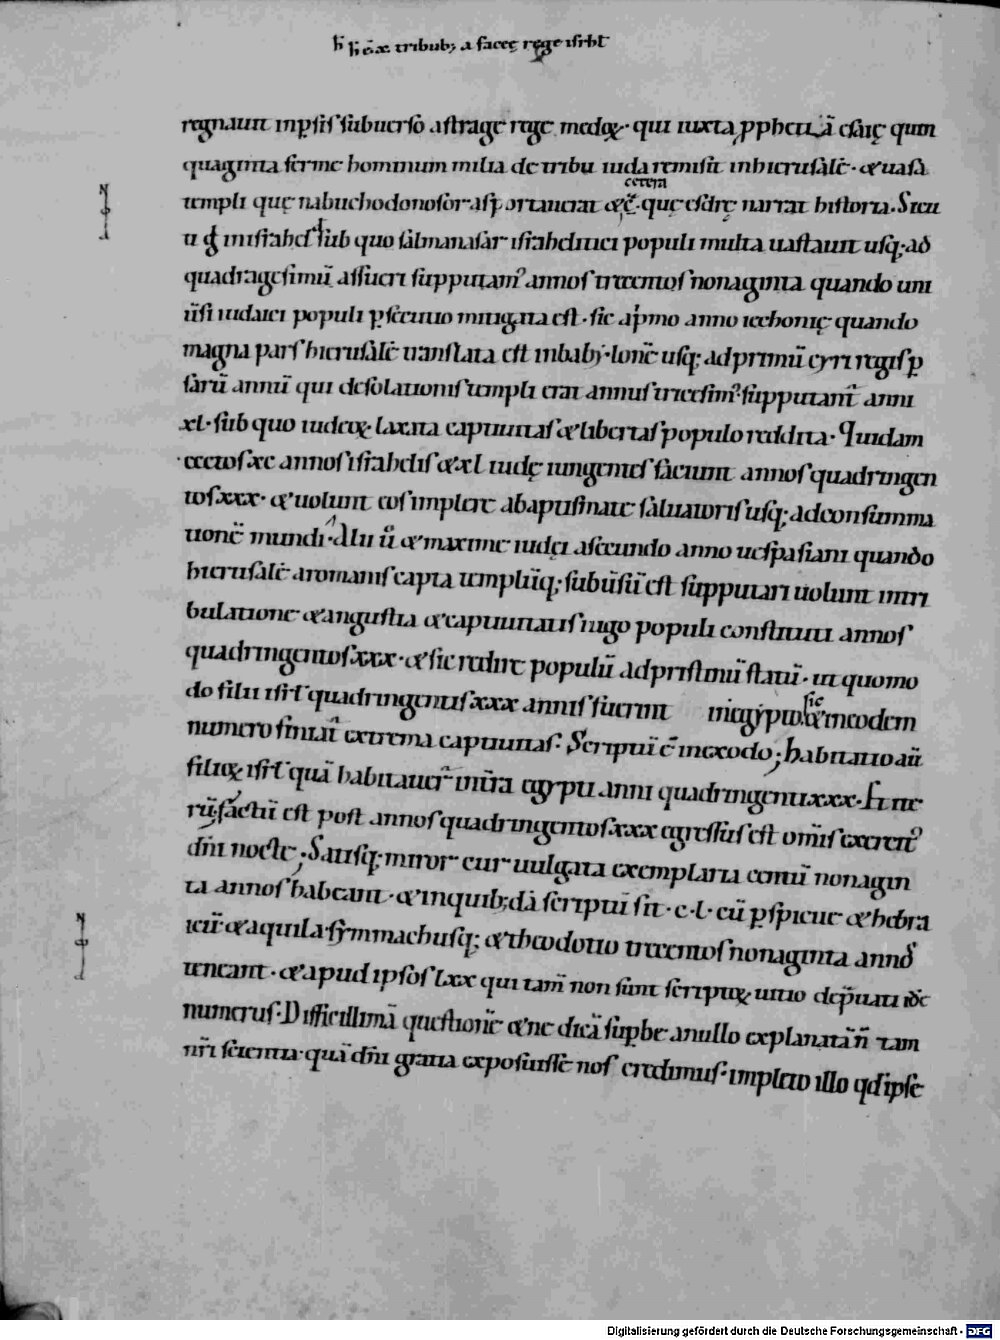 h̄ h̄ ēx tribub; a faceę rege isrƚ
regnauit inp̱sis subuerso astrage rege medoꝝ· qui iuxta pphetiā esaię quin
quaginta ferme hominum milia de tribu iuda remisit inhierusalē· &uasa
cetera
templi quę nabuchodonosor asportauerat &c̄· quę esdrę narrat historia. Sicu
ti g̊ inisrahel sub quo salmanasar israhelitici populi multa uastauit usq; ad
quadragesimū assueri supputam᾽ annos trecentos nonaginta quando uni
ūsi iudaici populi p̱secutio mitigata est· sic ap̍mo anno iechonię quando
magna pars hierusalē translata est inbabylonē usq; ad primū cyri regis p̱
sarū annū qui desolationis templi erat annus tricesim᾽ supputant̄ anni
xl· sub quo iudeoꝝ laxata captiuitas & libertas populo reddita· Quidam
ccctos xc annos israhelis & xl iudę iungentes faciunt annos quadringen
tos xxx· & uolunt eos implere abaptismate saluatoris usq; adconsumma
tionē mundi· Alii ū & maxime iudęi asecundo anno uespasiani quando
hierusalē aromanis capta templūq; subūsū est supputari uolunt intri
bulatione &angustia &captiuitatis iugo populi constituti annos
quadringentos xxx· & sic redire populū adpristinū statū· ut quomo
do filii isrƚ quadringentis xxx annis fuerint inęgypto
sic
&ineodem
numero finiat̄ extrema captiuitas· Scriptū ē inexodo; habitatio aū
filioꝝ isrƚ quā habitauer̄ inťra ęgypti anni quadringenti xxx· Et ite
rū; factū est post annos quadringentos xxx egressus est om̄is exercit᾽
dn̄i nocte; Satisq; miror cur uulgata exemplaria centū nonagin
ta annos habeant· & inquib;dā scriptū sit· c·l· cū p̱spicue & hebra
icū &aquila symmachusq; &theodotio trecentos nonaginta annos
teneant· &apud ipsos lxx qui tam̄ non sunt scriptoꝝ uitio
numerus· Difficillimā questionē &ne dicā sup̱be anullo explanatā n̄ tam
nr̄i scientia· quā dn̄i gratia exposuisse nos credimus· impleto illo qđ ipse
Digitalisierung gefördert durch die Deutsche Forschungsgemeinschaft - DFG